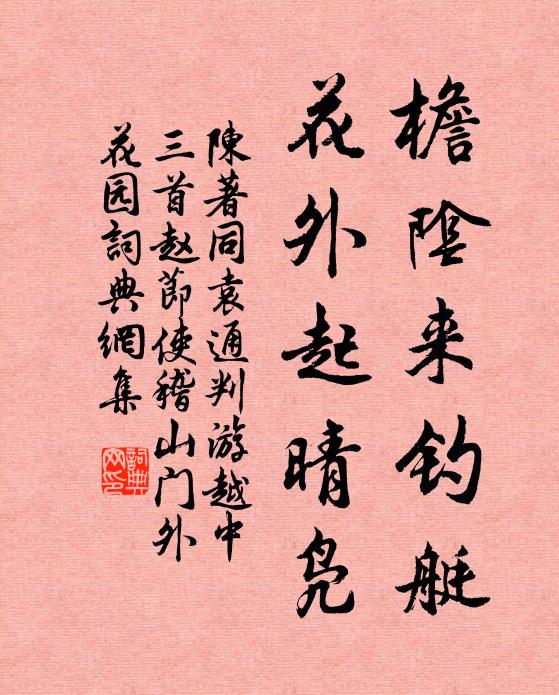 檐陰来钓艇
花外起晴凫
陳著同袁通判游越中
三首赵節使稽山门外
花园詞典網集
詞典
网印